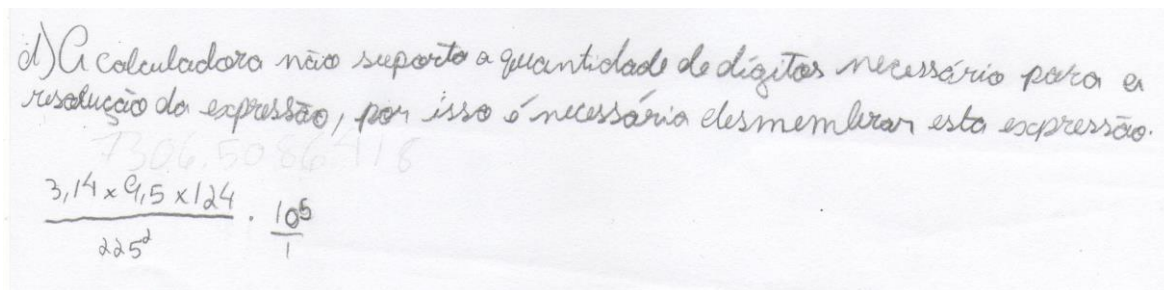 d) A calculadora não suporta a quantidade de dígitos necessário para a
resolução da expressão, por isso é necessária desmembrar esta expressão.
7306.5086418
3,14 x 9,5 x 124 / 225² . 10⁵ / 1